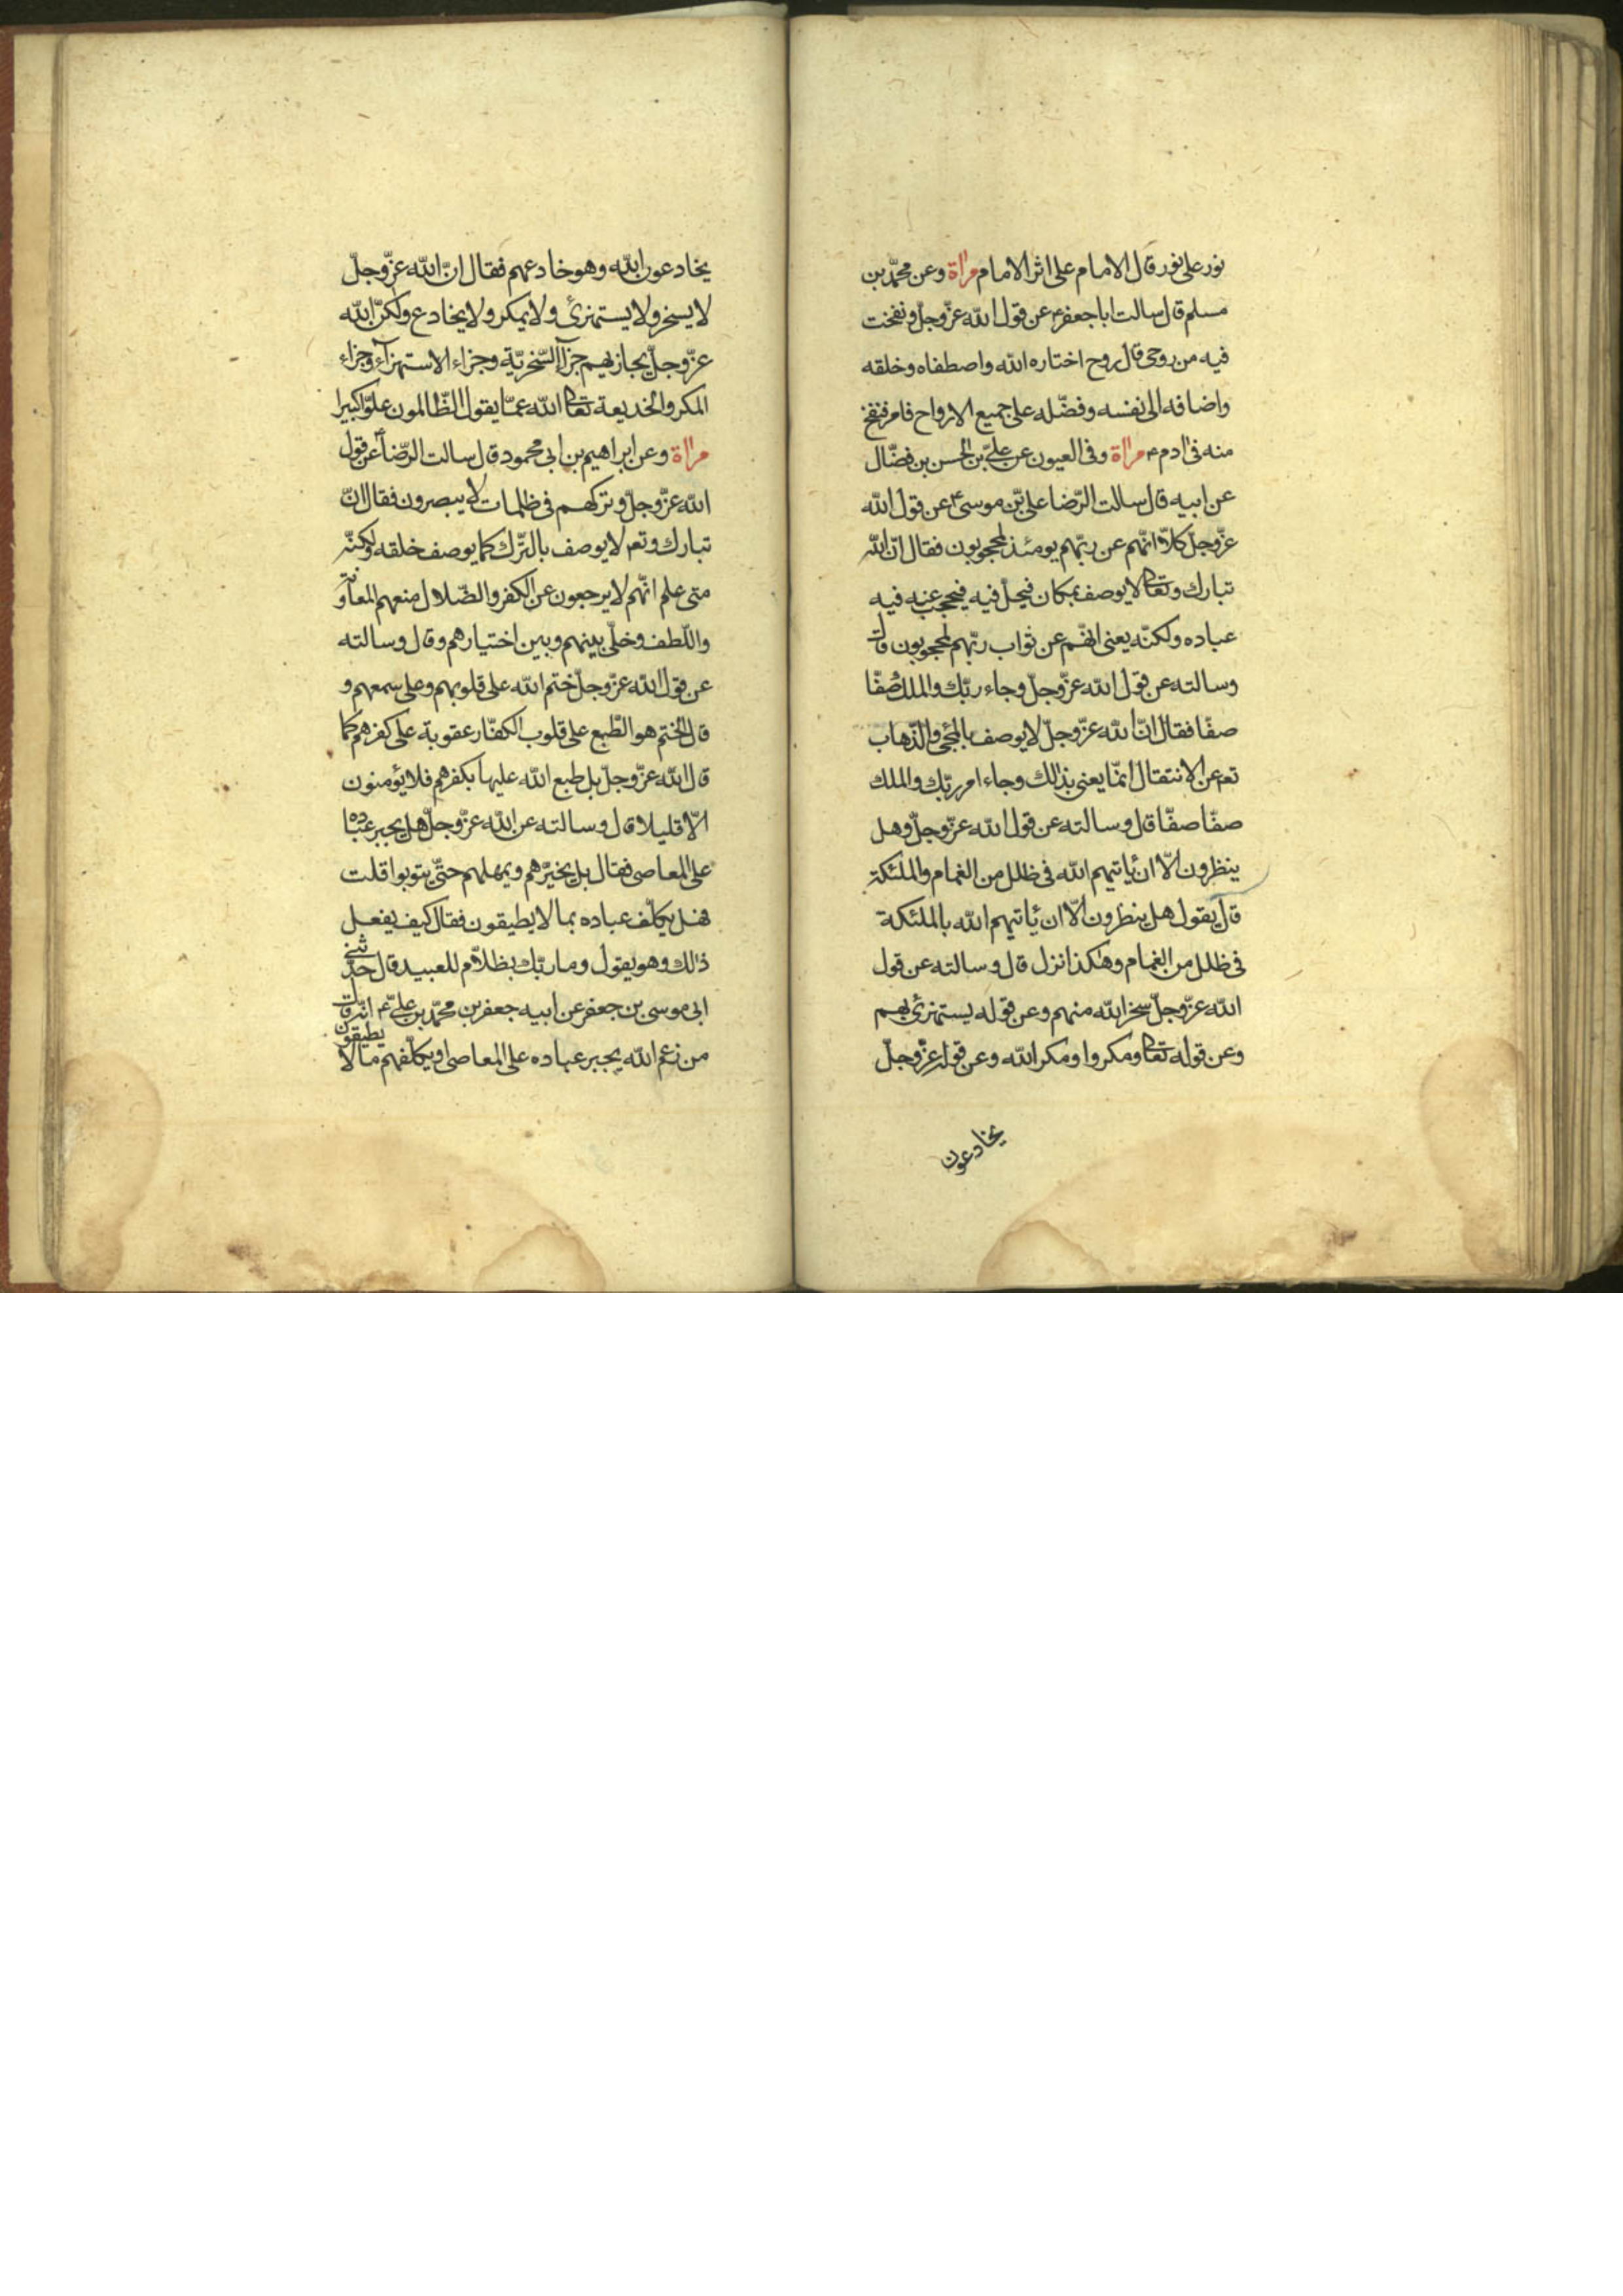 نور على نور قال الامام على اثر الامام مرآة وعن محمّد بن
مسلم قال سالت ابا جعفر ع عن قول الله عزّ وجلّ ونفخت
فيه من روحى قال روح اختاره الله واصطفاه وخلقه
واضافه الى نفسه وفضّله على جميع الارواح فامر فنفخ
منه فى ادم ع مرآة وفى العيون عن علىّ بن الحسن بن فضّال
عن ابيه قال سالت الرّضا علىّ بن موسى ع عن قول الله
عزّ وجلّ كلاّ انّهم عن ربّهم يومئذ لمحجوبون فقال انّ الله
تبارك وتعالى لا يوصف بمكان فيحلّ فيه فيحجب عنه فيه
عباده ولكنّه يعنى انّهم عن ثواب ربّهم لمحجوبون قال
وسالته عن قول الله عزّ وجلّ وجاء ربّك والملك صفّا
صفّا فقال انّ الله عزّ وجلّ لا يوصف بالمجئ والذّهاب
تع عن الانتقال انمّا يعنى بذالك وجاء امر ربّك والملك
صفّا صفّا قال وسالته عن قول الله عزّ وجلّ وهل
ينظرون الاّ ان ياتيهم الله فى ظلل من الغمام والملئكة
قال يقول هل ينظرون الاّ ان ياتيهم الله بالملئكة
فى ظلل من الغمام وهكذا نزل قال وسالته عن قول
الله عزّ وجلّ سخر الله منهم وعن قوله يستهزئ بهم
وعن قوله تعالى ومكروا ومكر الله وعن قوله عزّ وجلّ
يخادعون
يخادعون الله وهو خادعهم فقال انّ الله عزّ وجلّ
لا يسخر ولا يستهزئ ولا يمكر ولا يخادع ولكنّ الله
عزّ وجلّ يجازيهم جزآء السّخريّة وجزاء الاستهزآء وجزاء
المكر والخديعة تعالى الله عمّا يقول الظّالمون علوّا كبيرا
مرآة وعن ابراهيم بن ابى محمود قال سالت الرّضا ع عن قول
الله عزّ وجلّ وتركهم فى ظلمات لا يبصرون فقال انّ
تبارك وتع لا يوصف بالتّرك كما يوصف خلقه ولكنّه
متى علم انّهم لا يرجعون عن الكفر والضّلال منعهم المعاونة
واللّطف وخلّى بينهم وبين اختيارهم وقال وسالته
عن قول الله عزّ وجلّ ختم الله على قلوبهم وعلى سمعهم و
قال الختم هو الطّبع على قلوب الكفّار عقوبة على كفرهم كما
قال الله عزّ وجلّ بل طبع الله عليها بكفرهم فلا يؤمنون
الاّ قليلا قال وسالته عن الله عزّ وجلّ هل يجبر عباده
على المعاصى فقال بل يخيّرهم ويمهلهم حتّى يتوبوا قلت
فهل يكلّف عباده بما لا يطيقون فقال كيف يفعل
ذالك وهو يقول وما ربّك بظلاّم للعبيد قال حدّثنى
ابى موسى بن جعفر عن ابيه جعفر بن محمّد بن علىّ ع انّه قال
من زعم الله يجبر عباده على المعاصى او يكلّفهم ما لا يطيقون